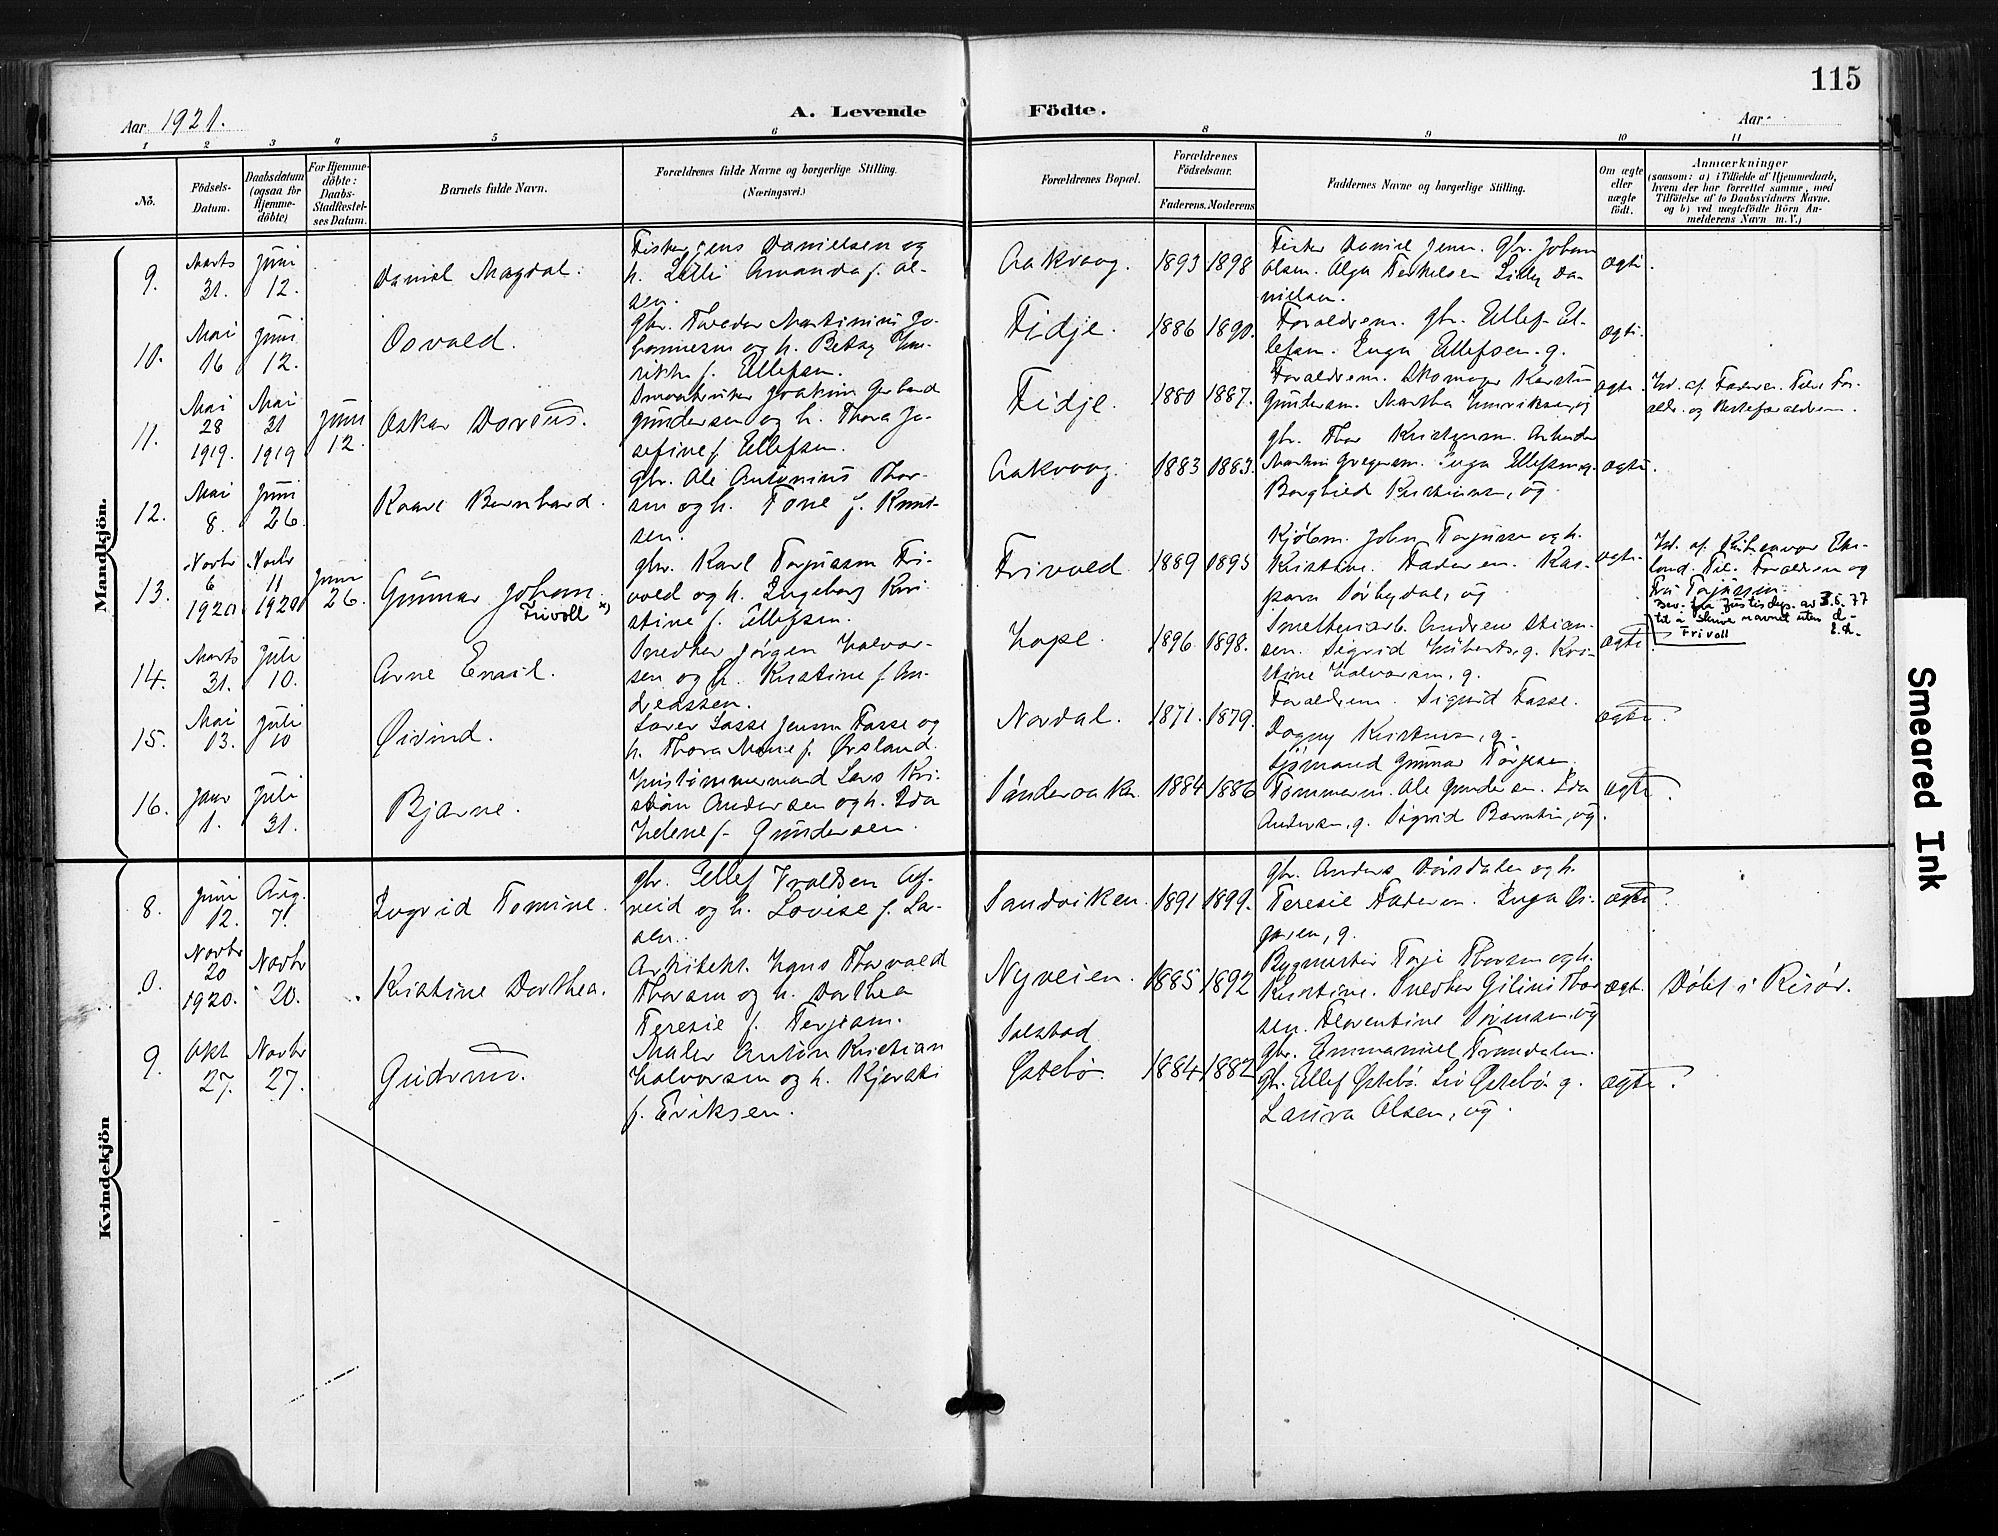 115
Aar 1921.
A. Levende Födte.
Aar
1 2 3 4 5 6 8 9 10 11
No.
Födsels-
Datum.
Daabsdatum
(ogsaa for
Hjemme-
döbte)
For Hjemme-
döbte:
Daabs-
Stadfæstel-
ses Datum.
Barnets fulde Navn.
Forældrenes fulde Navne og borgerlige Stilling.
(Næringsvei.)
Forældrenes Bopæl.
Forældrenes
Födselsaar.
Faderens. Moderens
Faddernes Navne og borgerlige Stilling.
Om ægte
eller
uægte
födt.
Anmærkninger
(saasom: a) i Tilfælde af Hjemmedaab,
hvem der har forrettet samme, med
Tilföielse af to Daabsvidners Navne.
og b) ved uægtefödte Börn An-
melderens Navn m. V.)
Mandkjön.
9.
Marts
31.
Juni
12.
Daniel Magdal.
Fisker Jens Danielsen og
h. Lilli Amanda f. Ol-
sen.
Aakvaag.
1893 1898
Fisker Daniel Jens. gbr. Johan
Olsen. Olga Terkelsen Lilly Da-
nielsen.
ægte.
10.
Mai
16
Juni
12.
Osvald.
gbr. Tveder Martinius Jo-
hannesen og h. Betsy Hen-
rikke f. Ellefsen.
Fidje.
1886 1890.
Forældrene. gbr. Ellef El-
lefsen. Inga Ellefsen. g.
ægte.
11.
Mai
28
1919.
Mai
31
1919
Juni
12.
Oskar Doreus.
Smaabruker Joakim Gerhard
Gundersen og h. Thora Jo-
sefine f. Ellefsen.
Fidje.
1880 1887.
Forældrene. Skomager Karsten
Gundersen. Martha Henriksen, ug
ægte.
Hd. af Faderen. Til. For-
ældr. og Bestefoældrene.
12.
Mai
8.
Juni
26.
Kaare Bernhard.
gbr. Ole Antonius Thor-
sen og h. Tone f. Knud-
sen.
Aakvaag.
1883 1883.
gbr. Thor Kristensen. Arbeider
Martin Gregersen. Inga Ellefsen g.
Borghild Kristensen, ug
ægte.
13.
Novbr
6
1920.
Novbr
11
1920
Juni
26.
Gunnar Johan.
Frivoll x)
gbr. Karl Torjussen Fri-
vold og h. Ingeborg Kri-
stine f. Ellefsen.
Frivold
1889 1895
Kjöbm. John Torjussen og h.
Kristine. Faderen. Kas-
para Sørbydal, ug
ægte.
Til. Forældrene og
Fru Torjussen.
Bev. fra Justisdep. av 3.6.77
til å skrive navnet uten d-
Frivoll
14.
Marts
31.
Juli
10.
Arne Emil.
Snedker Jörgen Halvor-
sen og h. Kristine f. An-
dreassen.
Hope.
1896 1898.
Smelteriarb. Andreas Stian-
sen. Sigrid Hüberts, g. Kri-
stine Halvorsen, g.
ægte.
15.
Mai
13.
Juli
10
Øivind.
Lærer Lasse Jensen Fasse og
h. Thora Marie f. Ørsland.
Nordal.
1871. 1879.
Forældrene. Sigurd Fasse.
Dagny Kristensen, g.
ægte.
16.
Janr
1.
Juli
31.
Bjarne.
Hustømmermand Lars Kri-
stian Andersen og h. Ida
Helene f. Gundersen.
1884 1886
Sjömand Gunnar Torjusen.
Tømmerm. Ole Gundersen. Ida
Andersen, g. Sigrid Berntsen, ug.
ægte.
Kvindekjön
8.
Juni
12.
Aug.
7.
Ingrid Tomine.
gbr. Ellef Troldsen Og-
neid og h. Lovise f. Lar-
sen.
Sandviken.
1891 1899.
gbr. Anders Dörsdalen og h.
Teresie Faderen. Inga
ægte.
0.
Novbr
20
1920.
Novbr
20.
Kristine Dorthea.
Arkitekt. Hans Thorvald
Thorsen og h. Dorthea
Teresie f. Terjesen.
Nyveien.
1885 1892
Bygmester Terje Thorsen og h.
Kristine. Snedker Gilius Thor-
sen. Florentine Sörensen, ug
ægt.
Döbt i Risör.
9.
Okt
27.
Novbr
27.
Gudrun.
Maler Anton Kristian
Halvorsen og h. Kjersti
f. Eriksen.
Salstad
Østebö.
1884 1882
gbr. Emmanuel Trondalen.
gbr. Ellef Østebö. Liv Østebö g.
Laura Olsen, ug.
ægte.
Smeared Ink